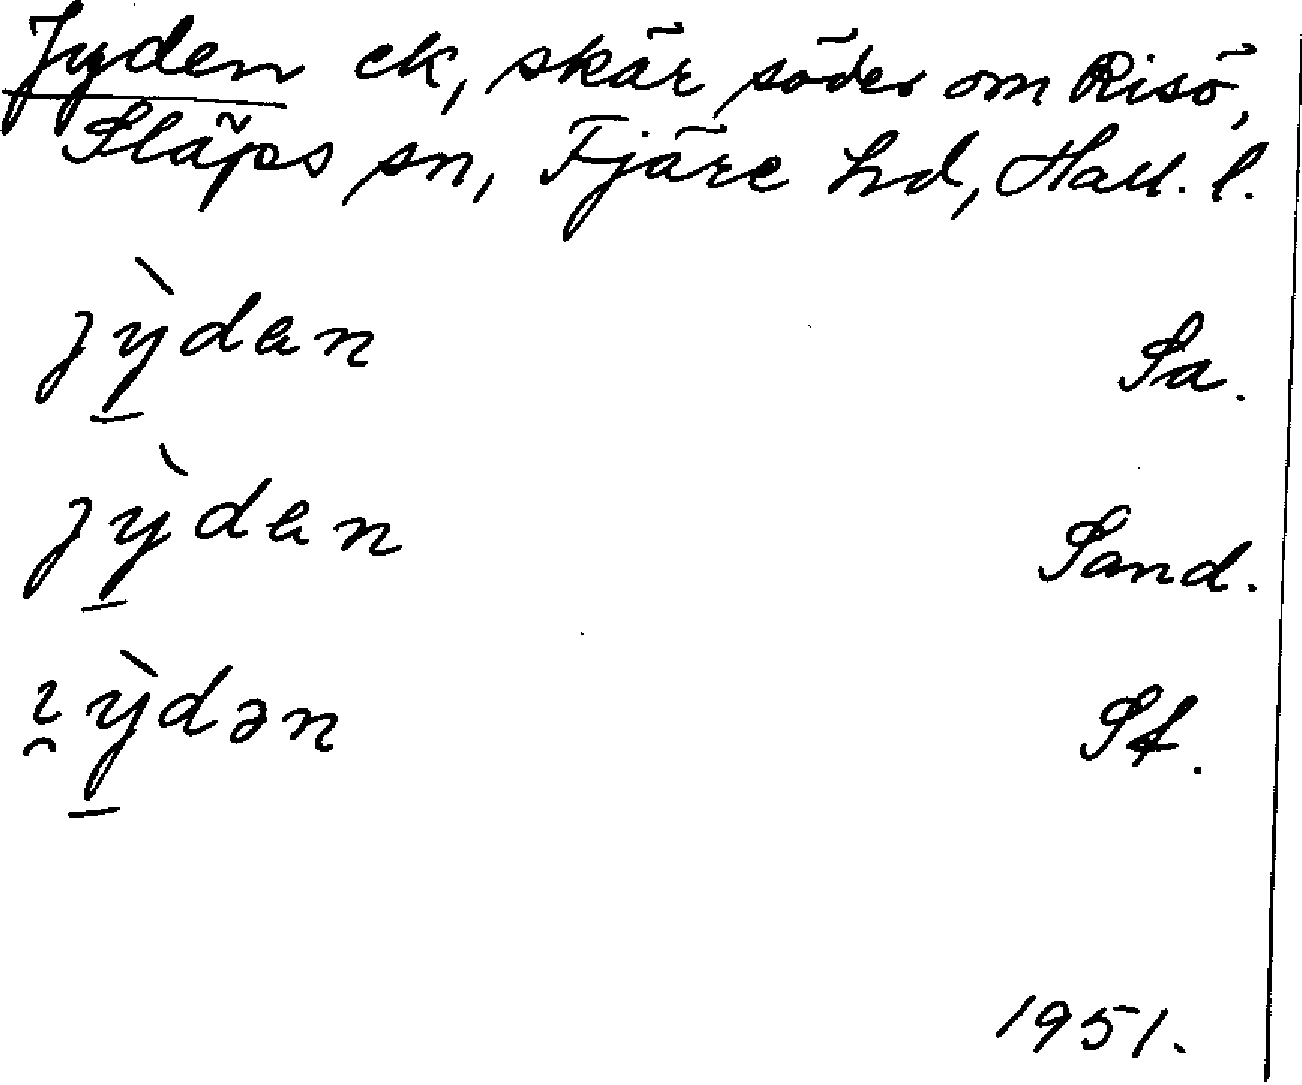 Jyden ek, skär söder om Risö,
Släps sn, Fjäre hd, Hall. l.
ȷỳ̠dɐn Sa.
ȷỳ̠dɐn Sand.
ı̯ỳ̠dən St.
1951.